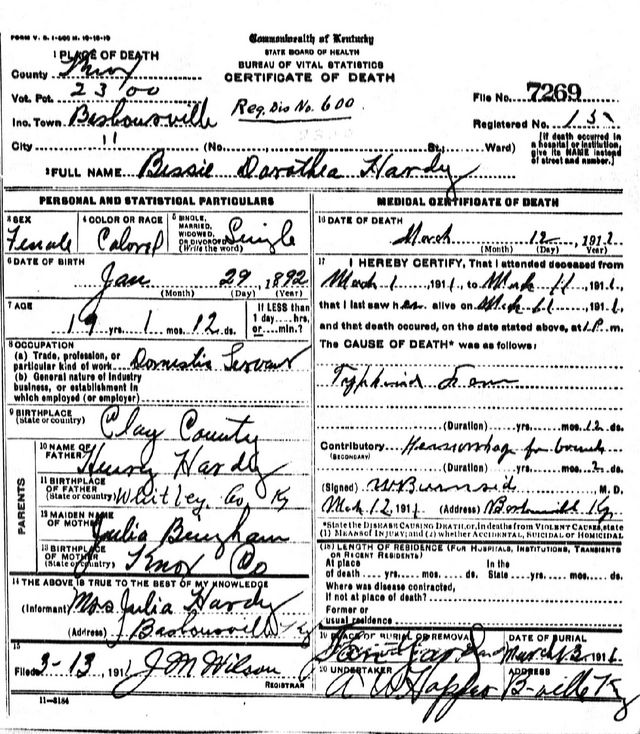 FORM V. S. 1-500 M. 10-10-10
Commonwealth of Kentucky
STATE BOARD OF HEALTH
BUREAU OF VITAL STATISTICS
CERTIFICATE OF DEATH
1 PLACE OF DEATH
County Knox
Vot. Pct. 2300
Inc. Town Barbourville
City 11 (No. St.; Ward)
Reg. Dis No. 600
File No. 7269
Registered No. 13
[If death occurred in a hospital or institution, give its NAME instead of street and number.]
2 FULL NAME Bessie Dorothea Hardy
PERSONAL AND STATISTICAL PARTICULARS
3 SEX Female
4 COLOR OR RACE Colored
5 SINGLE, MARRIED, WIDOWED, OR DIVORCED (Write the word) Single
6 DATE OF BIRTH
Jan 29, 1892
(Month) (Day) (Year)
7 AGE
19 yrs. 1 mos. 12 ds.
If LESS than 1 day...hrs. or...min.?
8 OCCUPATION
(a) Trade, profession, or particular kind of work Domestic Servant
(b) General nature of industry business, or establishment in which employed (or employer)
9 BIRTHPLACE (State or country) Clay County
PARENTS
10 NAME OF FATHER Henry Hardy
11 BIRTHPLACE OF FATHER (State or country) Whitley Co, Ky
12 MAIDEN NAME OF MOTHER Julia Bingham
13 BIRTHPLACE OF MOTHER (State or country) Knox Co
14 THE ABOVE IS TRUE TO THE BEST OF MY KNOWLEDGE
(Informant) Mrs Julia Hardy
(Address) Barbourville Ky
15
Filed 3-13, 1911 J M Wilson
REGISTRAR
11-3184
MEDICAL CERTIFICATE OF DEATH
16 DATE OF DEATH
March 12, 1911
(Month) (Day) (Year)
17 I HEREBY CERTIFY, That I attended deceased from
March 1 1911, to March 11 1911,
that I last saw her alive on March 11 1911,
and that death occured, on the date stated above, at 1 P. m.
The CAUSE OF DEATH* was as follows:
Typhoid Fever
(Duration) yrs. mos. 12 ds.
Contributory Hemorrhage
(SECONDARY)
(Duration) yrs. mos. 2 ds.
(Signed) Burnside, M. D.
Mch 12, 1911 (Address) Ky
*State the DISEASE CAUSING DEATH, or, in deaths from VIOLENT CAUSES, state
(1) MEANS of INJURY; and (2) whether ACCIDENTAL, SUICIDAL OR HOMICIDAL
(18) LENGTH OF RESIDENCE (FOR HOSPITALS, INSTITUTIONS, TRANSIENTS OR RECENT RESIDENTS)
At place of death yrs. mos. ds. In the State yrs. mos. ds.
Where was disease contracted,
If not at place of death?
Former or
usual residence
19 PLACE OF BURIAL OR REMOVAL
DATE OF BURIAL March 13, 1911
20 UNDERTAKER A W Hopper
ADDRESS B-ville Ky